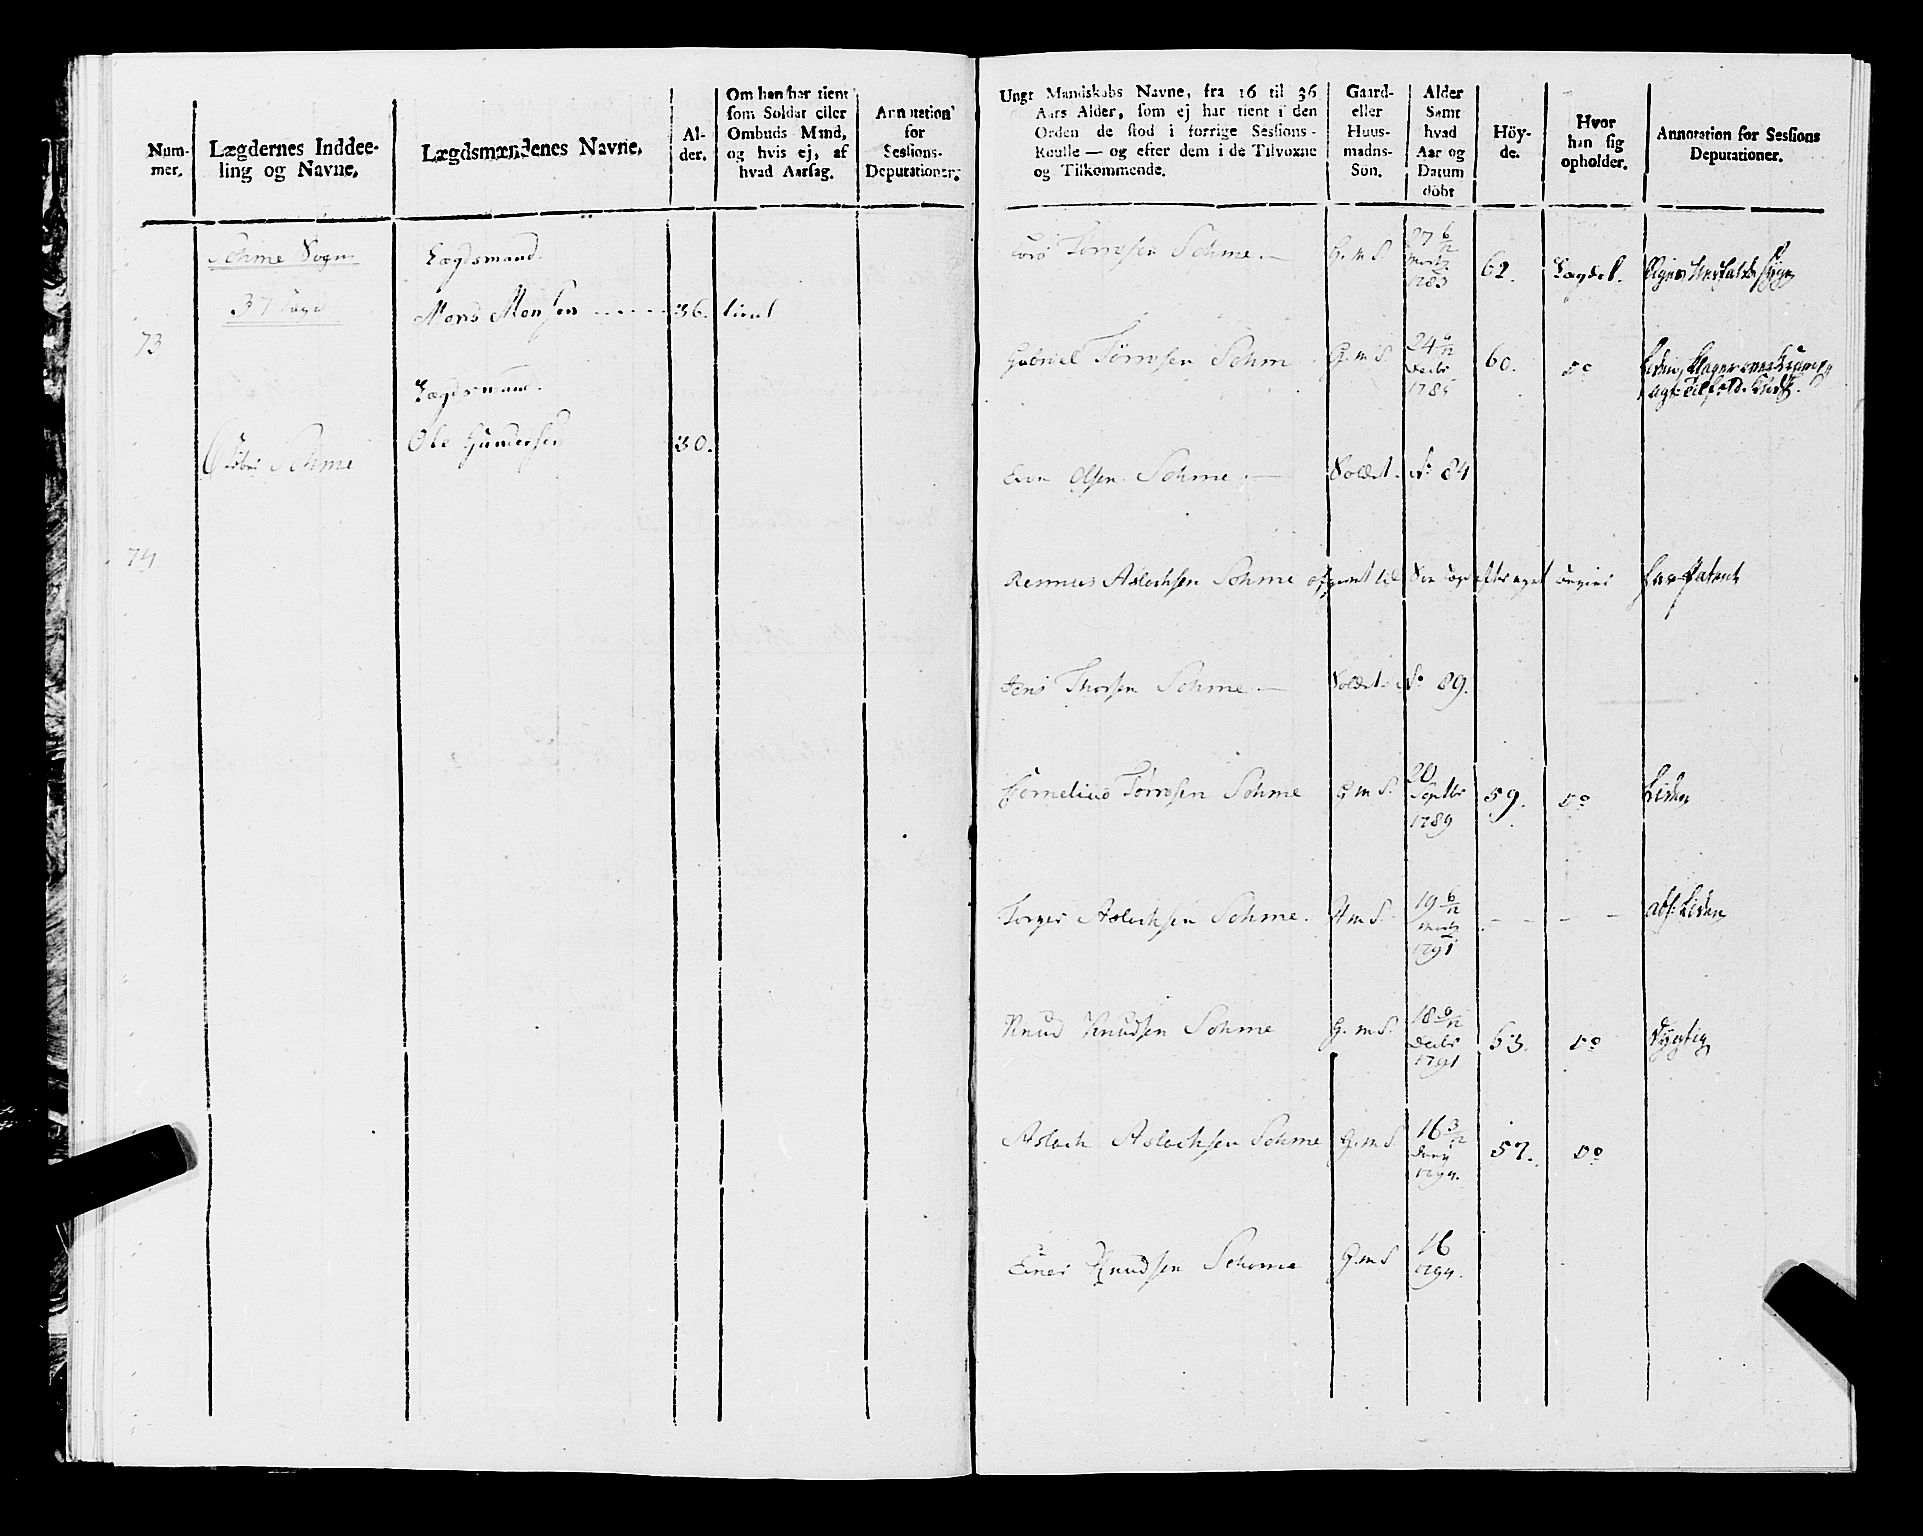 Num-
mer.
Lægdernes Inddee-
ling og Navne.
Lægdsmændenes Navne.
Al-
der.
Om han har tient
som Soldat eller
Ombuds Mand,
og hvis ej, af
hvad Aarsag.
Annotation
for
Sessions-
Deputationer.
Sohme Sogn
37 Lægd
73
Lægdsmand.
Mons Monsen 36. tient
Lægdsmand.
Sohme
Ole Gundersen 30.
74
Ungt Mandskabs Navne, fra 16 til 36
Aars Alder, som ej har tient i den
Orden de stod i forrige Sessions-
Roulle — og efter dem i de Tilvoxne
og Tilkommende.
Gaard-
eller
Huus-
mands-
Sön.
Alder
Samt
hvad
Aar og
Datum
döbt
Höy-
de.
Hvor
han sig
opholder.
Annotation for Sessions
Deputationer.
Tørresen Sohme. — G. m S. 27 6/12 Marts 1783 62. Lægdet.
Gabriel Tørresen Sohm G. m S. 24 9/12 Decbr 1785 60. Do
Even Olsen Sohme. — Soldat. No 84
Rasmus Aslachsen Sohme Patent
Jens Thorsen Sohme — Soldat. No 89.
Cornelius Tørresen Sohme G m S. 20 Septbr 1789 59. Do Liden
Torger Aslachsen Sohme. G m S. 19 6/12 Marts 1791 — — — Liden
Knud Knudsen Sohme G. m S. 18 9/12 Decbr 1791 63. Do Dygtig
Aslach Aslachsen Sohme G. m S 16 3/12 1794. 57. Do
Einer Knudsen Sohme G. m S 16 1794.